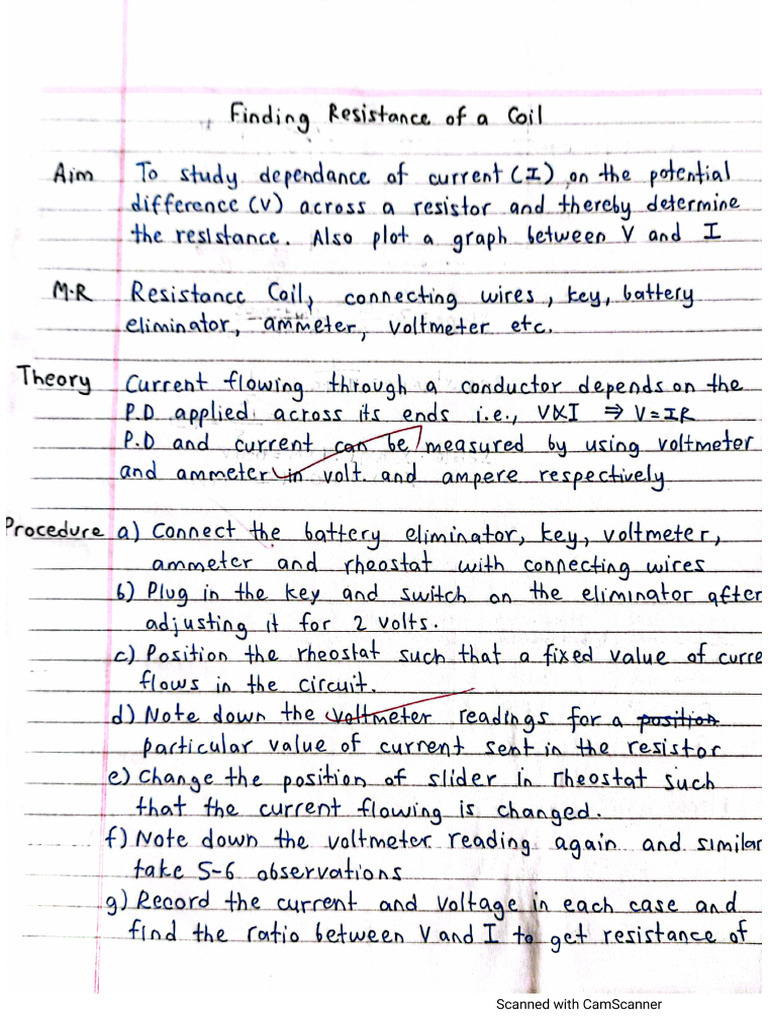 Finding Resistance of a Coil
Aim To study dependance of current (I) on the potential
difference (V) across a resistor and thereby determine
the resistance. Also plot a graph between V and I
M.R Resistance Coil, connecting wires, key, battery
eliminator, ammeter, voltmeter etc.
Theory Current flowing through a conductor depends on the
P.D applied across its ends i.e., V∝I ⇒ V=IR
P.D and current can be measured by using voltmeter
and ammeter in volt. and ampere respectively
Procedure a) Connect the battery eliminator, key, voltmeter,
ammeter and rheostat with connecting wires
b) Plug in the key and switch on the eliminator after
adjusting it for 2 volts.
c) Position the rheostat such that a fixed value of curre
flows in the circuit.
d) Note down the voltmeter readings for a position
particular value of current sent in the resistor
e) Change the position of slider in rheostat such
that the current flowing is changed.
f) Note down the voltmeter reading again and similar
take 5-6 observations
g) Record the current and voltage in each case and
find the ratio between V and I to get resistance of
Scanned with CamScanner